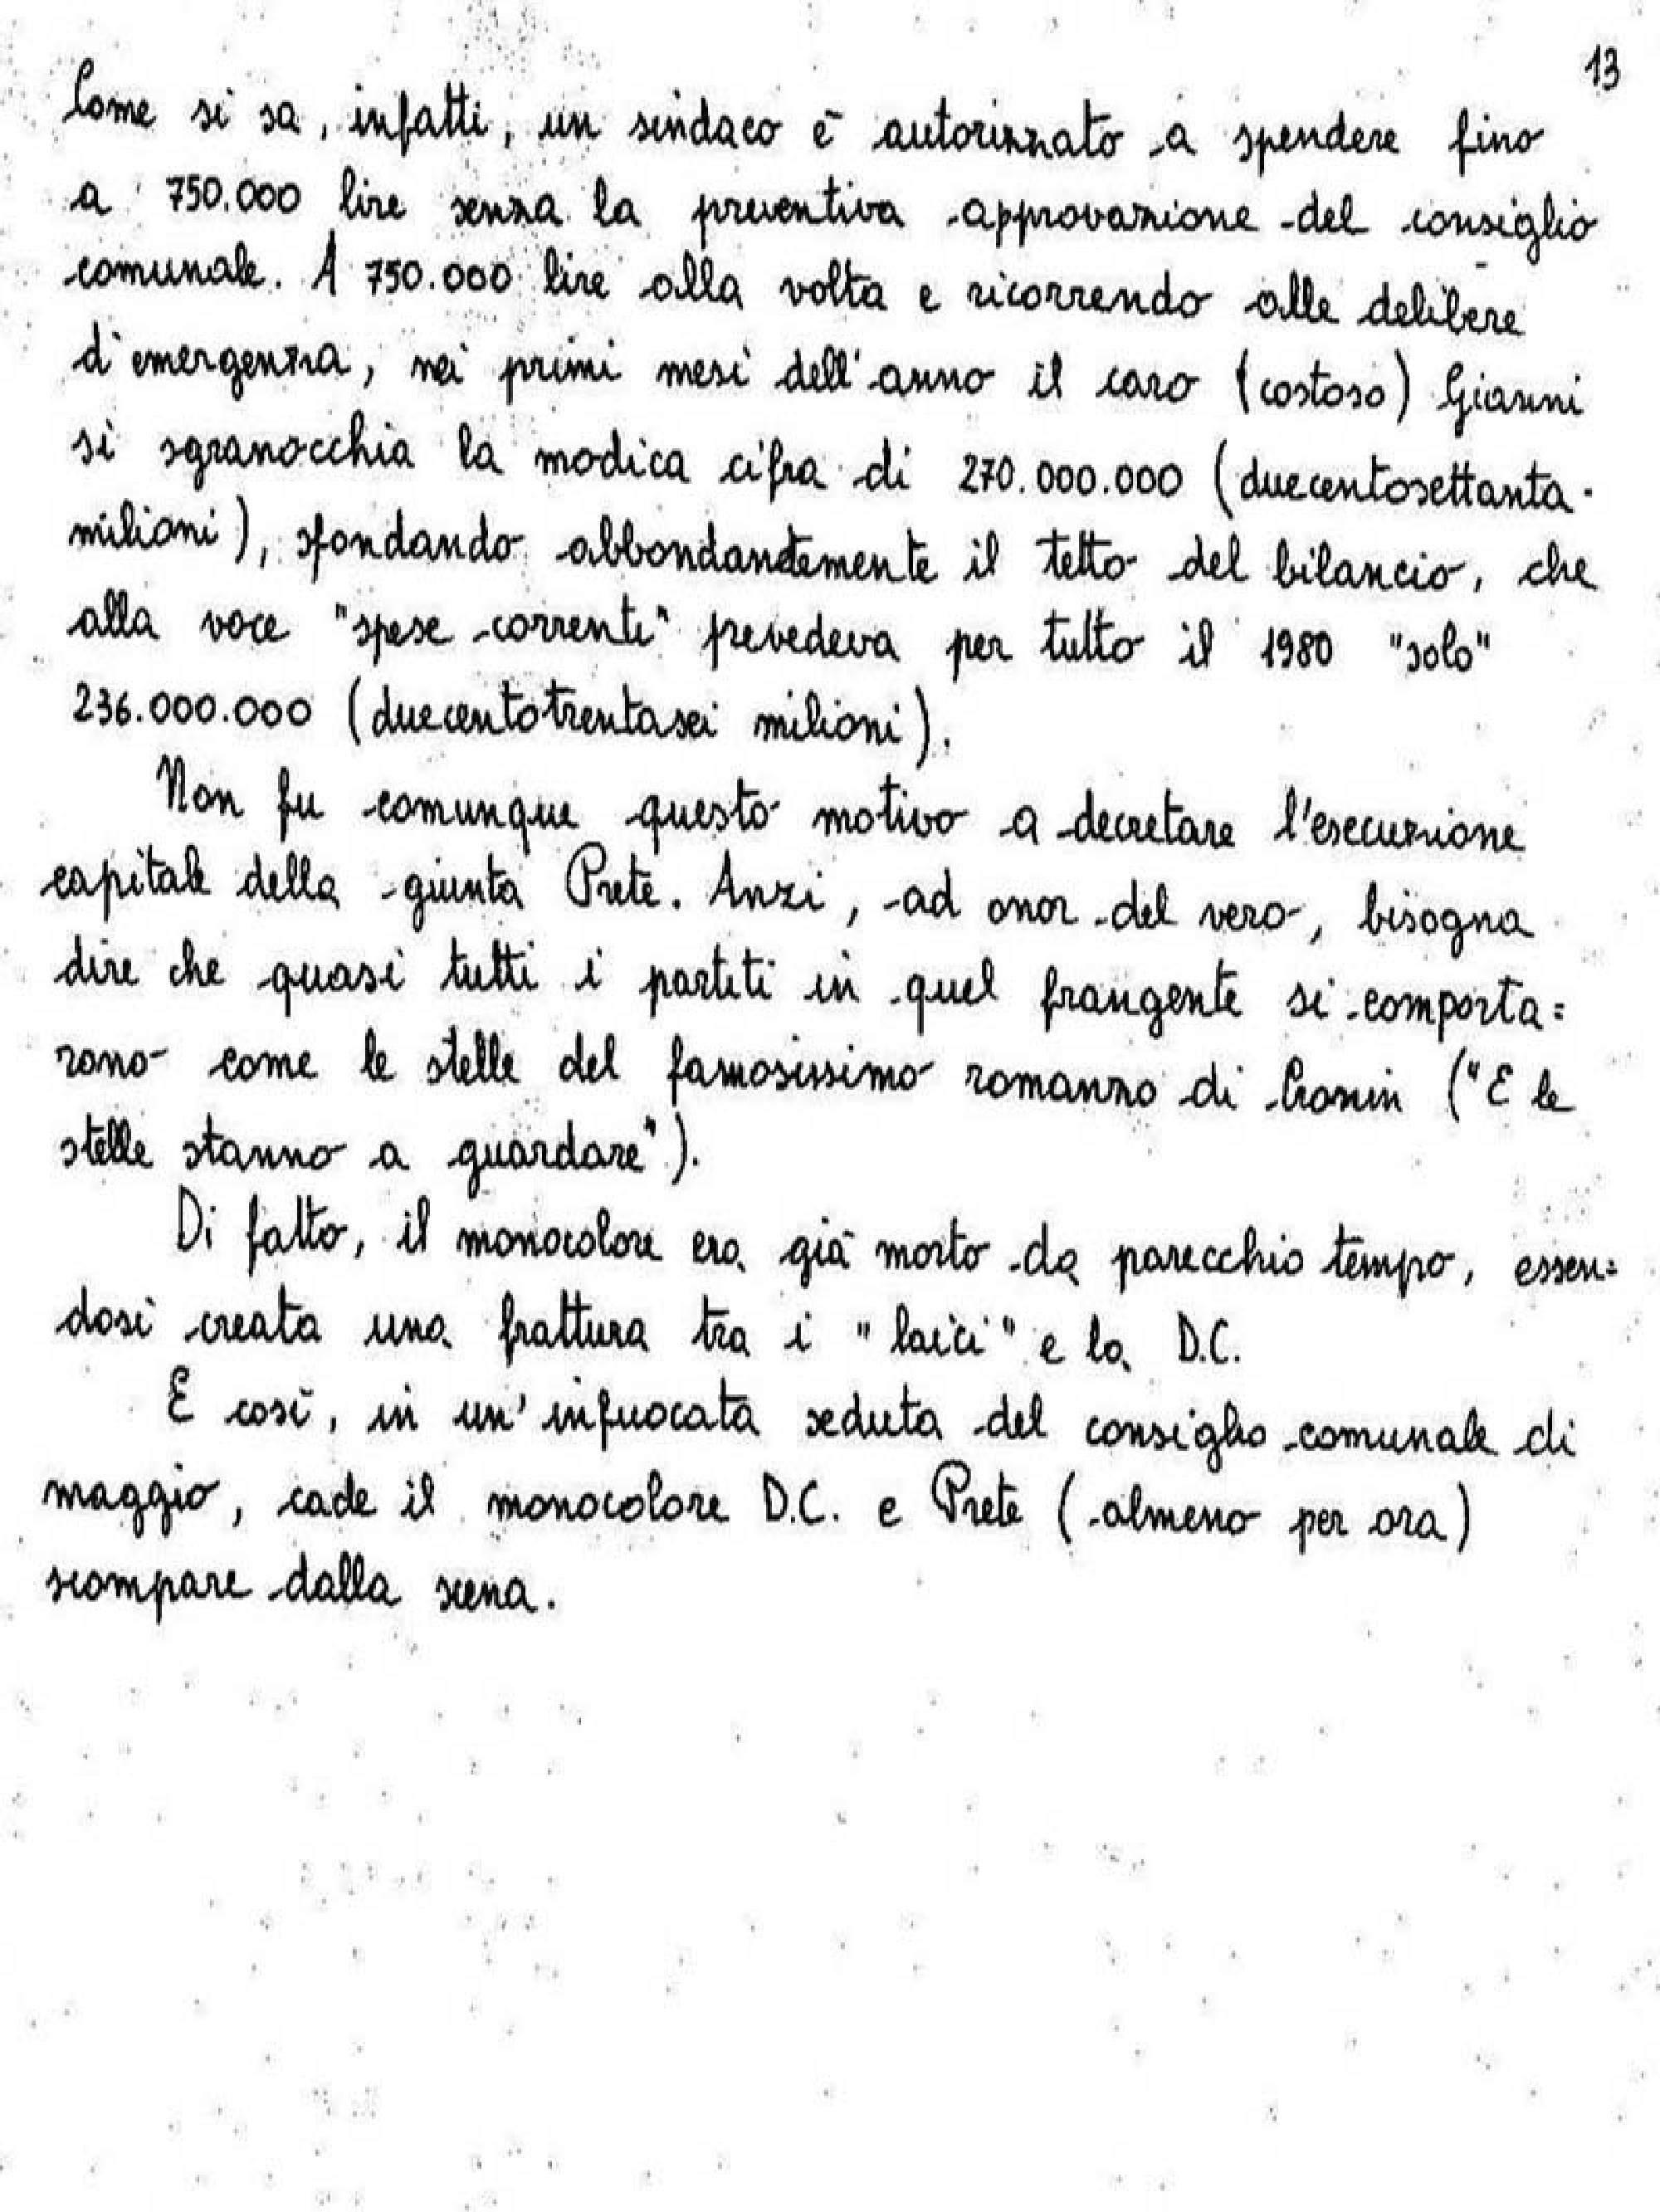 13
Come si sa, infatti, un sindaco è autorizzato a spendere fino
a 750.000 lire senza la preventiva approvazione del consiglio
comunale. A 750.000 lire alla volta e ricorrendo alle delibere
d'emergenza, nei primi mesi dell'anno il caro (costoso) Gianni
si sgranocchia la modica cifra di 270.000.000 (duecentosettanta-
milioni), sfondando abbondantemente il tetto del bilancio, che
alla voce "spese correnti" prevedeva per tutto il 1980 "solo"
236.000.000 (duecentotrentasei milioni).
Non fu comunque questo motivo a decretare l'esecuzione
capitale della giunta Prete. Anzi, ad onor del vero, bisogna
dire che quasi tutti i partiti in quel frangente si comporta=
rono come le stelle del famosissimo romanzo di Cronin ("E le
stelle stanno a guardare").
Di fatto, il monocolore era già morto da parecchio tempo, essen=
dosi creata una frattura tra i "laici" e la D.C.
E così, in un'infuocata seduta del consiglio comunale di
maggio, cade il monocolore D.C. e Prete (almeno per ora)
scompare dalla scena.